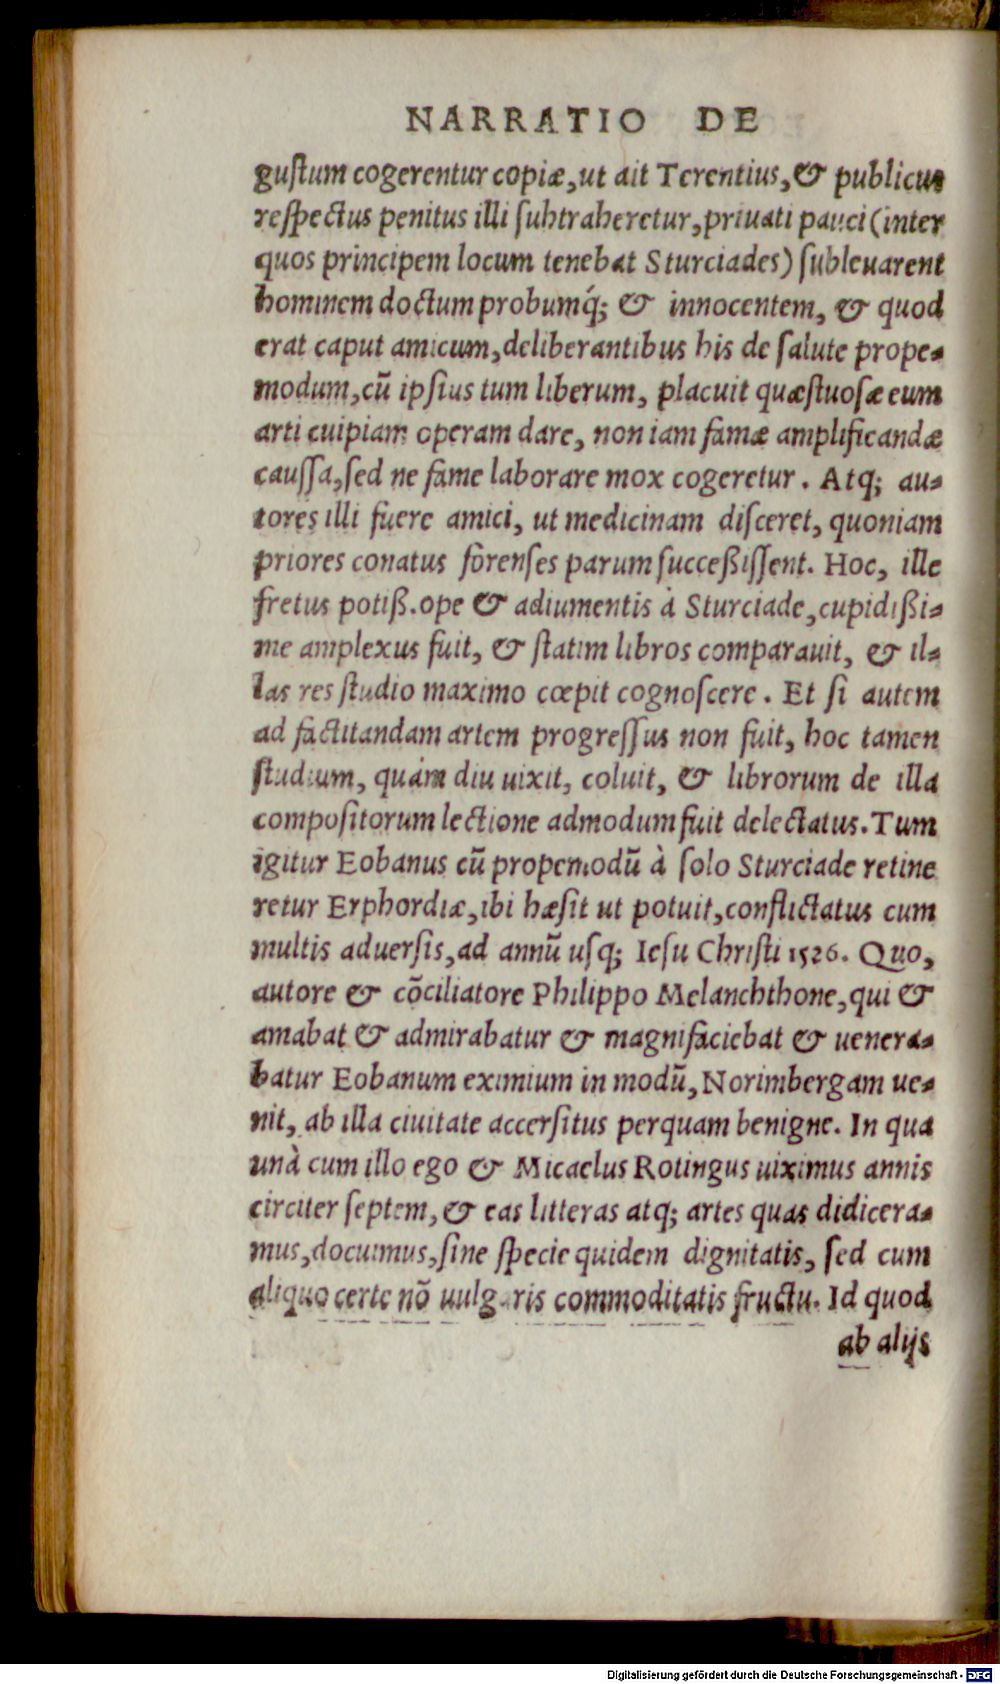 NARRATIO DE
guſtum cogerentur copiæ, ut ait Terentius, & publicus
reſpectus penitus illi ſubtraheretur, priuati pauci (inter
quos principem locum tenebat Sturciades) ſubleuarent
hominem doctum probumq́; & innocentem, & quod
erat caput amicum, deliberantibus his de ſalute prope-
modum, cũ ipſius tum liberum, placuit quæſtuoſæ eum
arti cuipiam operam dare, non iam famæ amplificandæ
cauſſa, ſed ne fame laborare mox cogeretur. Atq; au-
tores illi fuere amici, ut medicinam diſceret, quoniam
priores conatus forenſes parum ſucceßiſſent. Hoc, ille
fretus potiß. ope & adiumentis à Sturciade, cupidißi-
me amplexus fuit, & ſtatim libros comparauit, & il-
las res ſtudio maximo cœpit cognoſcere. Et ſi autem
ad factitandam artem progreſſus non fuit, hoc tamen
ſtudium, quàm diu uixit, coluit, & librorum de illa
compoſitorum lectione admodum fuit delectatus. Tum
igitur Eobanus cũ propemodũ à ſolo Sturciade retine
retur Erphordiæ, ibi hæſit ut potuit, conflictatus cum
multis aduerſis, ad annũ uſq; Ieſu Chriſti 1526. Quo,
autore & cõciliatore Philippo Melanchthone, qui &
amabat & admirabatur & magnifaciebat & uenera-
batur Eobanum eximium in modũ, Norimbergam ue-
nit, ab illa ciuitate accerſitus perquam benigne. In qua
unà cum illo ego & Micaelus Rotingus uiximus annis
circiter ſeptem, & eas litteras atq; artes quas didicera-
mus, docuimus, ſine ſpecie quidem dignitatis, ſed cum
aliquo certe nõ uulgaris commoditatis fructu. Id quod
ab alijs
Digitalisierung gefördert durch die Deutsche Forschungsgemeinschaft - DFG